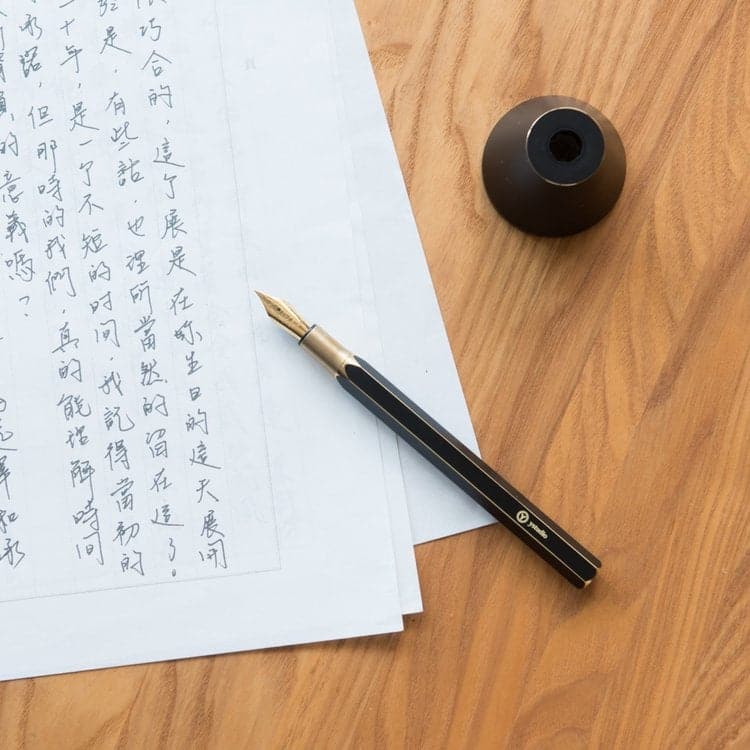 巧合的，這个展是在你生日的這天展開
是，有些話，也理所當然的留在這了。
二十年，是一个不短的时间，我記得當初的
承諾，但那時的我們，真的能理解時間
的意義嗎？
擇和永
ystudio